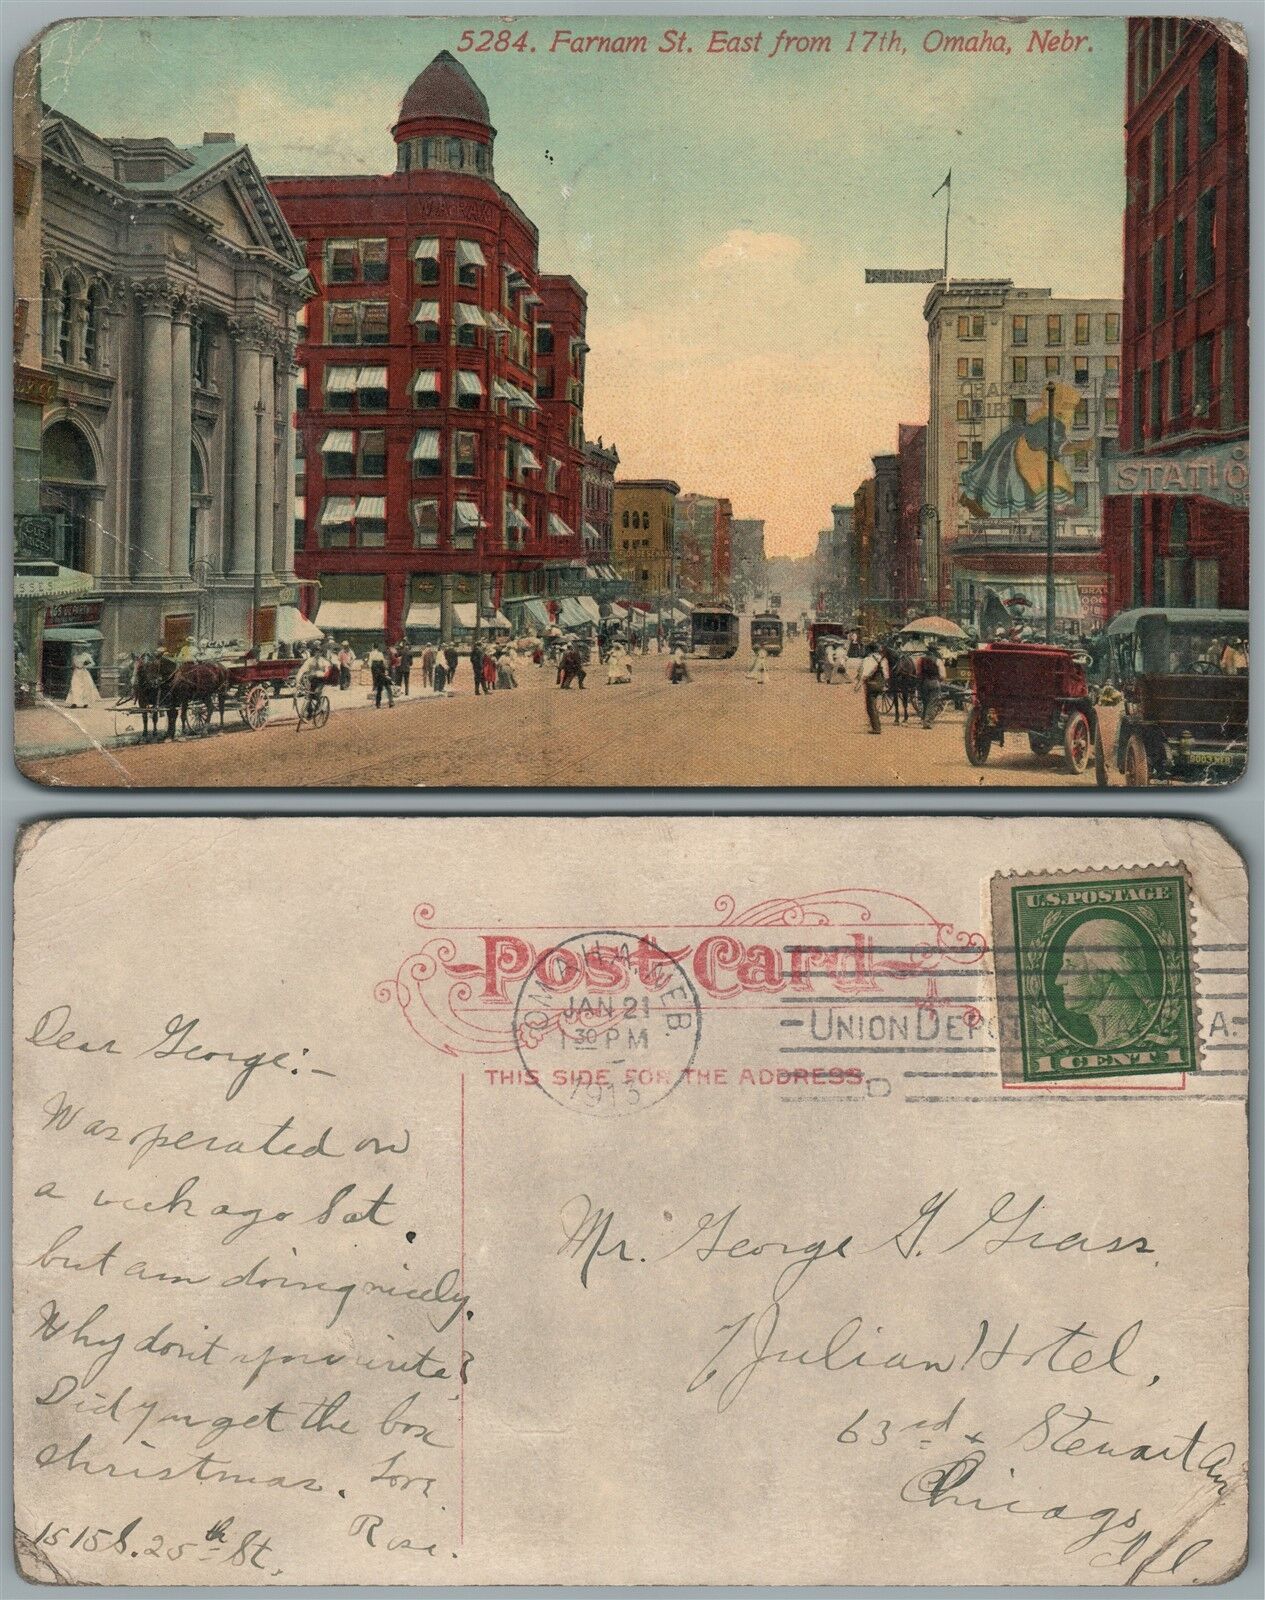 5284. Farnam St. East from 17th, Omaha, Nebr.
STATIO
Post Card
THIS SIDE FOR THE ADDRESS.
OMAHA, NEB.
JAN 21
1 30 PM
1913
UNION DEPOT STA.
U.S. POSTAGE
1 CENT 1
Dear George:-
Was operated on
a week ago Sat.
but am doing nicely.
Why don't you write?
Did you get the box
Christmas. Love
Rose.
1515 S. 25th St.
Mr. George G. Grass
% Julian Hotel,
63rd + Stewart Av
Chicago
Ill.